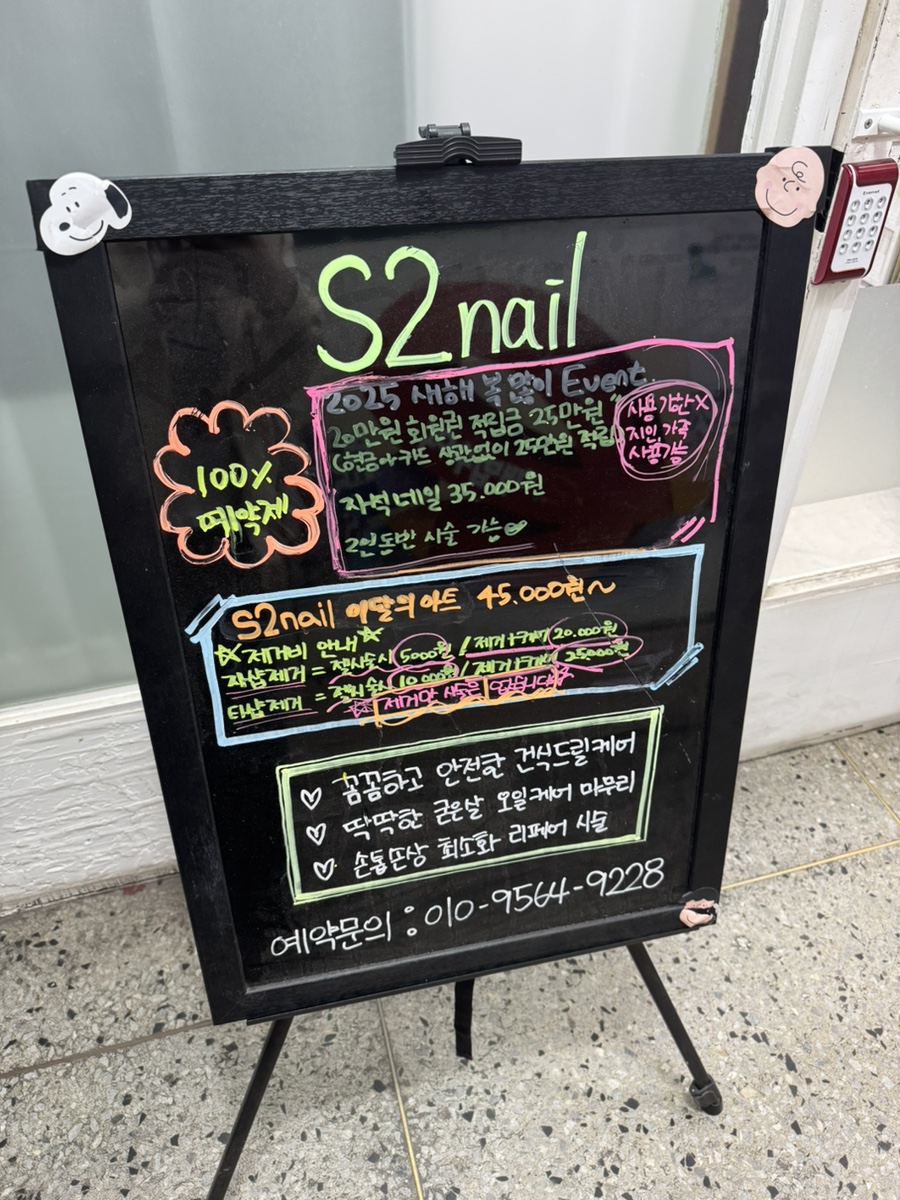 S2nail
2025 새해 복 많이 Event
20만원 회원권 적립금 25만원
(현금or카드 상관없이 25만원 적립)
사용기한X
지인, 가족
사용가능
자석네일 35.000원
2인동반 시술 가능
100%
예약제
S2nail 이달의아트 45.000원~
☆제거비 안내☆
자샵제거 = 젤시술시 5000원 / 제거+케어 20.000원
타샵제거 = 젤시술시 10.000원 / 제거+케어 25000원
☆제거만 시술은 없습니다☆
♡ 꼼꼼하고 안전한 건식드릴케어
♡ 딱딱한 굳은살 오일케어 마무리
♡ 손톱손상 최소화 리페어 시술
예약문의 : 010-9564-9228